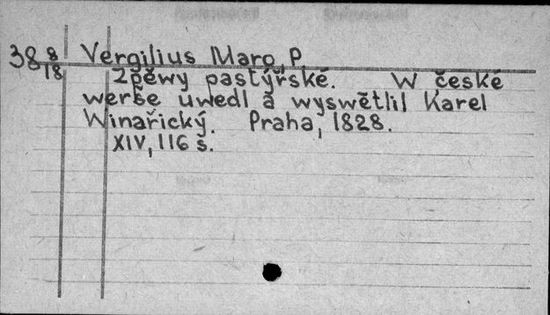 38 8/18 Vergilius Maro, P.
Zpěwy pastýřské. W české
werše uwedl a wyswětlil Karel
Winařický. Praha, 1828.
XIV, 116 s.